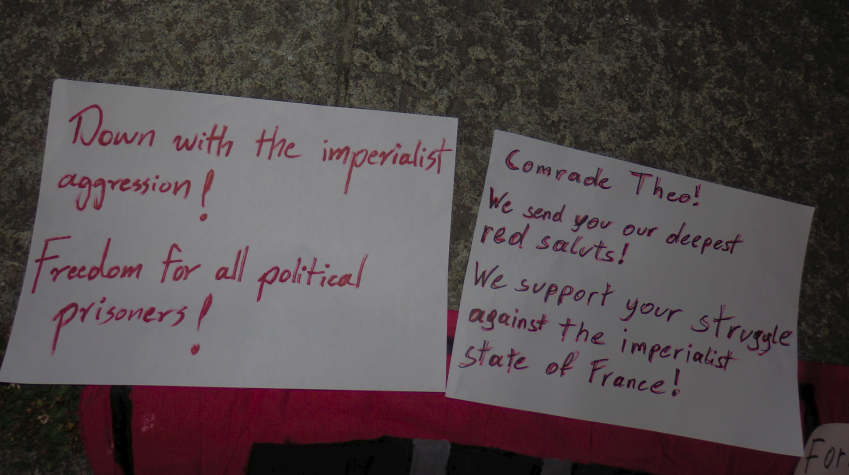 Down with the imperialist
aggression!
Freedom for all political
prisoners!
Comrade Theo!
We send you our deepest
red saluts!
We support your struggle
against the imperialist
state of France!
For